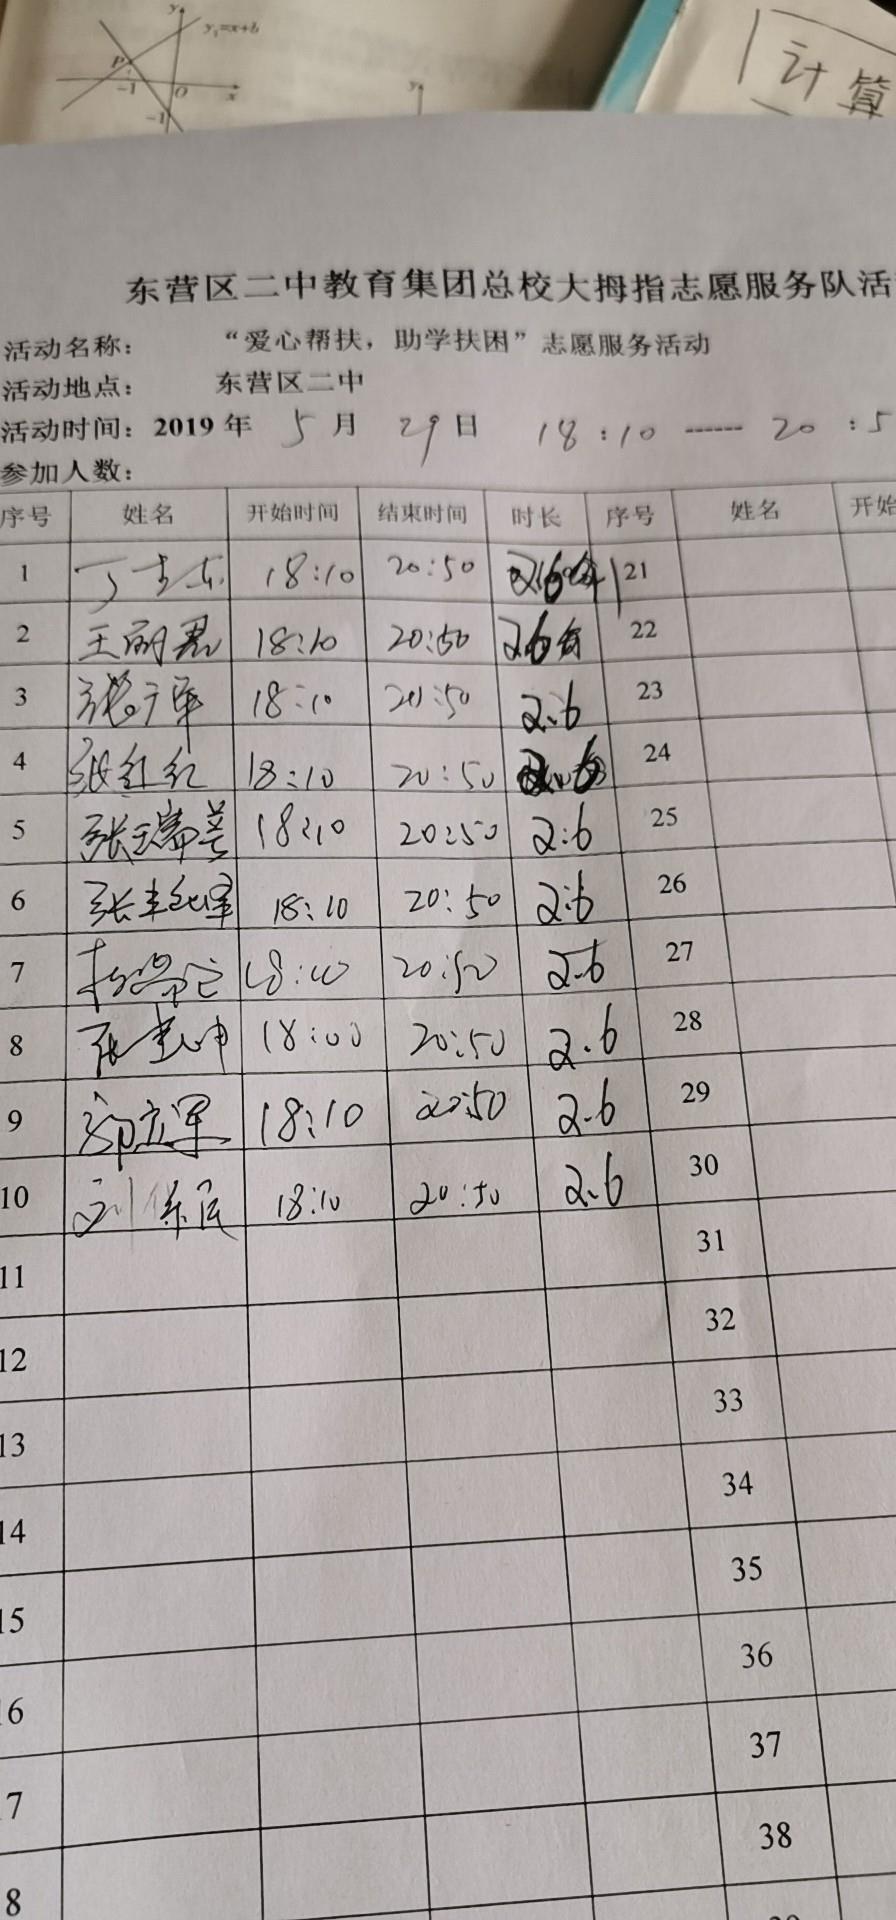 y
y₁=x+b
P
-1
O
x
-1
y
计算
东营区二中教育集团总校大拇指志愿服务队活
活动名称： “爱心帮扶，助学扶困”志愿服务活动
活动地点： 东营区二中
活动时间：2019年 5月 29日 18:10 ------ 20:5
参加人数：
序号 姓名 开始时间 结束时间 时长 序号 姓名 开始
1 18:10 20:50 21
2 王丽君 18:10 20:50 2.6 22
3 张广军 18:10 20:50 2.6 23
4 张红红 18:10 20:50 2.6 24
5 张瑞芸 18:10 20:50 2:6 25
6 18:10 20:50 2:6 26
7 18:10 20:50 2.6 27
8 18:00 20:50 2.6 28
9 郭立军 18:10 20:50 2.6 29
10 刘 18:10 20:50 2.6 30
11 31
12 32
13 33
14 34
15 35
6 36
7 37
8 38